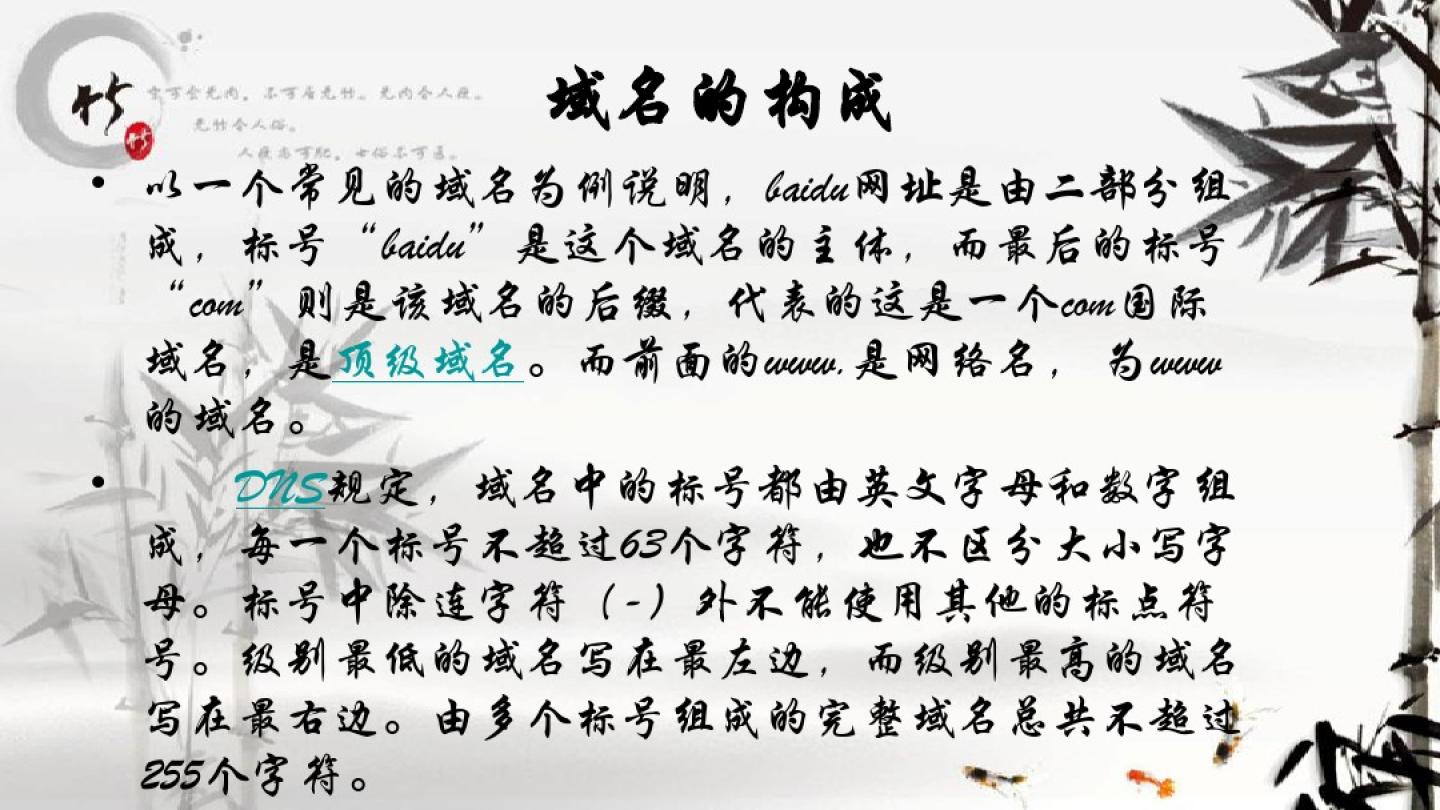 竹
竹
宁可食无肉，不可居无竹。无肉令人瘦，
无竹令人俗。
人瘦尚可肥，士俗不可医。
域名的构成
• 以一个常见的域名为例说明，baidu网址是由二部分组
成，标号“baidu”是这个域名的主体，而最后的标号
“com”则是该域名的后缀，代表的这是一个com国际
域名，是顶级域名。而前面的www.是网络名，为www
的域名。
• DNS规定，域名中的标号都由英文字母和数字组
成，每一个标号不超过63个字符，也不区分大小写字
母。标号中除连字符（-）外不能使用其他的标点符
号。级别最低的域名写在最左边，而级别最高的域名
写在最右边。由多个标号组成的完整域名总共不超过
255个字符。